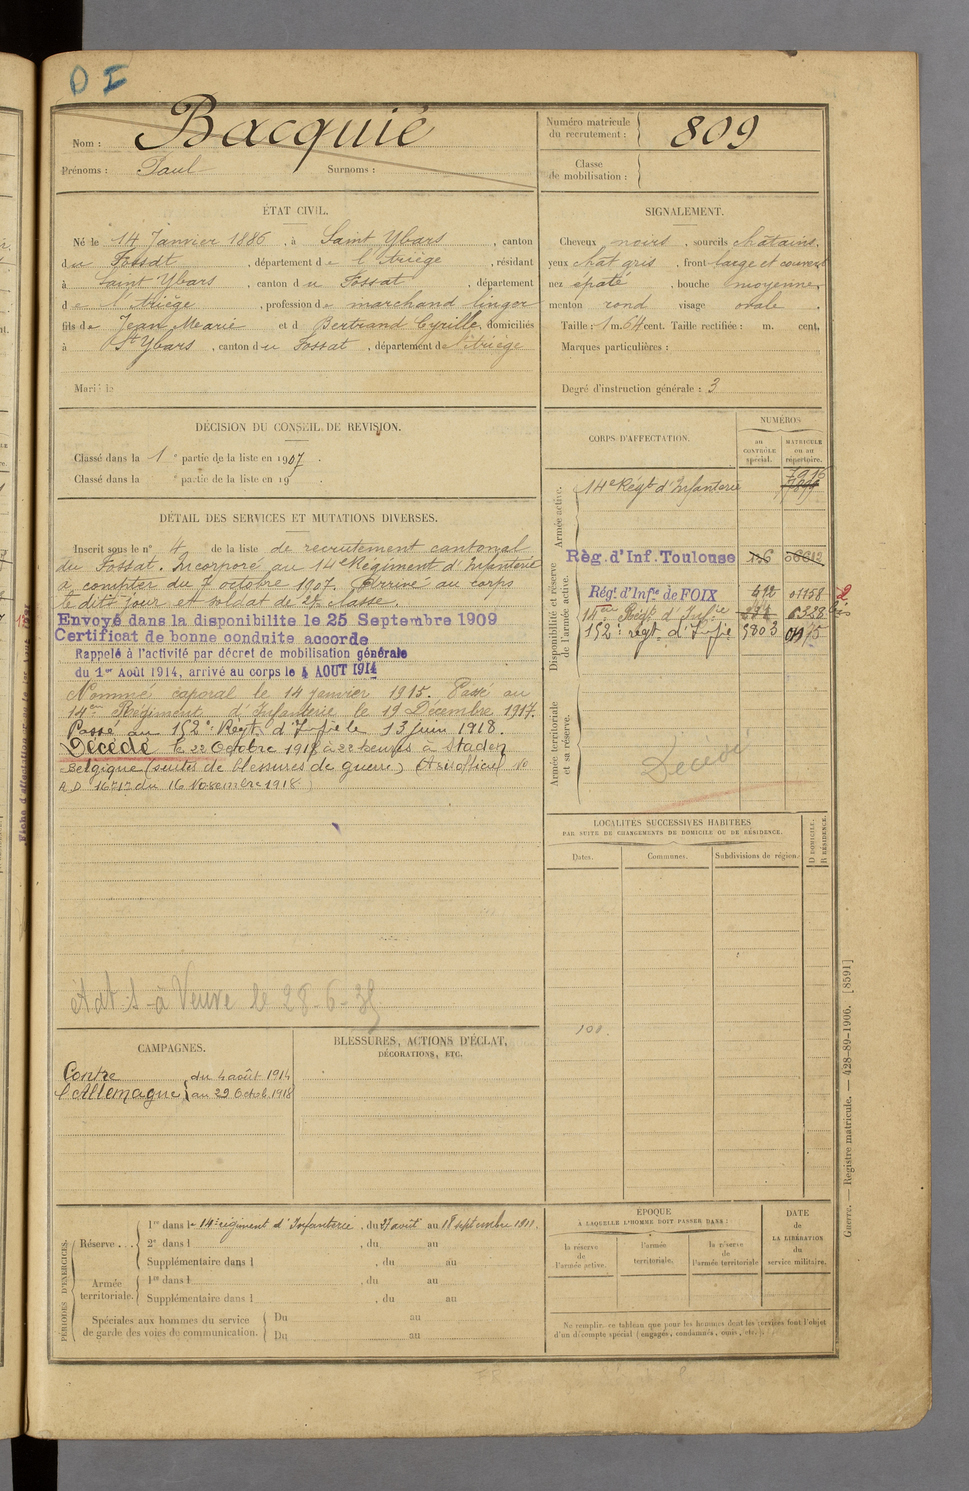 D I
Nom : Bacquié
Prénoms : Paul Surnoms :
Numéro matricule du recrutement : 809
Classe de mobilisation :
ÉTAT CIVIL.
Né le 14 Janvier 1886, à Saint Ybars, canton
du Fossat, département de l'Ariège, résidant
à Saint Ybars, canton du Fossat, département
de l'Ariège, profession de marchand linger
fils de Jean Marie et d Bertrand Cyrille, domiciliés
à St Ybars, canton du Fossat, département de l'Ariège
Marié le
SIGNALEMENT.
Cheveux noirs, sourcils chatains,
yeux chat gris, front large et couvert
nez épaté, bouche moyenne,
menton rond visage ovale.
Taille : 1 m. 64 cent. Taille rectifiée : m. cent,
Marques particulières :
Degré d'instruction générale : 3
DÉCISION DU CONSEIL DE REVISION.
Classé dans la 1e partie de la liste en 1907.
Classé dans la e partie de la liste en 19
DÉTAIL DES SERVICES ET MUTATIONS DIVERSES.
Inscrit sous le n° 4 de la liste de recrutement cantonal
du Fossat. Incorporé au 14e Régiment d'Infanterie
à compter du 7 octobre 1907. Arrivé au corps
le dit jour et soldat de 2e classe.
Envoyé dans la disponibilite le 25 Septembre 1909
Certificat de bonne conduite accorde
Rappelé à l'activité par décret de mobilisation générale
du 1er Août 1914, arrivé au corps le 4 AOUT 1914
Nommé caporal le 14 janvier 1915. Passé au
14em Régiment d'Infanterie le 19 Décembre 1917.
Passé au 152e Regt d'Infie le 13 juin 1918.
Décédé le 22 Octobre 1918 à 22 heures à Staden
Belgique (suites de blessures de guerre) (Avis officiel No
A.D 16712 du 16 Novembre 1918)
à Veuve le 28-6-38
CORPS D'AFFECTATION.
NUMÉROS
au CONTRÔLE spécial.
MATRICULE ou au répertoire.
Armée active.
14e Régt d'Infanterie 7916
Disponibilité et réserve de l'armée active.
Rég. d'Inf. Toulouse 126
Régt d'Infie de FOIX 412 01158
14em Régt d'Infie 6328
152e régt d'Infie 9803
Armée territoriale et sa réserve.
Décédé
LOCALITÉS SUCCESSIVES HABITÉES
PAR SUITE DE CHANGEMENTS DE DOMICILE OU DE RÉSIDENCE.
Dates. Communes. Subdivisions de région. D DOMICILE. R RÉSIDENCE.
CAMPAGNES.
Contre l'Allemagne
du 4 août 1914
au 22 Octob. 1918
BLESSURES, ACTIONS D'ÉCLAT,
DÉCORATIONS, ETC.
PÉRIODES D'EXERCICES.
Réserve...
1re dans le 14e régiment d'Infanterie, du 27 août au 18 septembre 1911.
2e dans l , du au
Supplémentaire dans l , du au
Armée territoriale.
1re dans l , du au
Supplémentaire dans l , du au
Spéciales aux hommes du service de garde des voies de communication.
Du au
Du au
ÉPOQUE
À LAQUELLE L'HOMME DOIT PASSER DANS :
la réserve de l'armée active.
l'armée territoriale.
la réserve de l'armée territoriale
DATE de LA LIBÉRATION du service militaire.
Ne remplir ce tableau que pour les hommes dont les services font l'objet
d'un décompte spécial (engagés, condamnés, omis, etc.)
Guerre. — Registre matricule. — 428-89-1906. [8591]